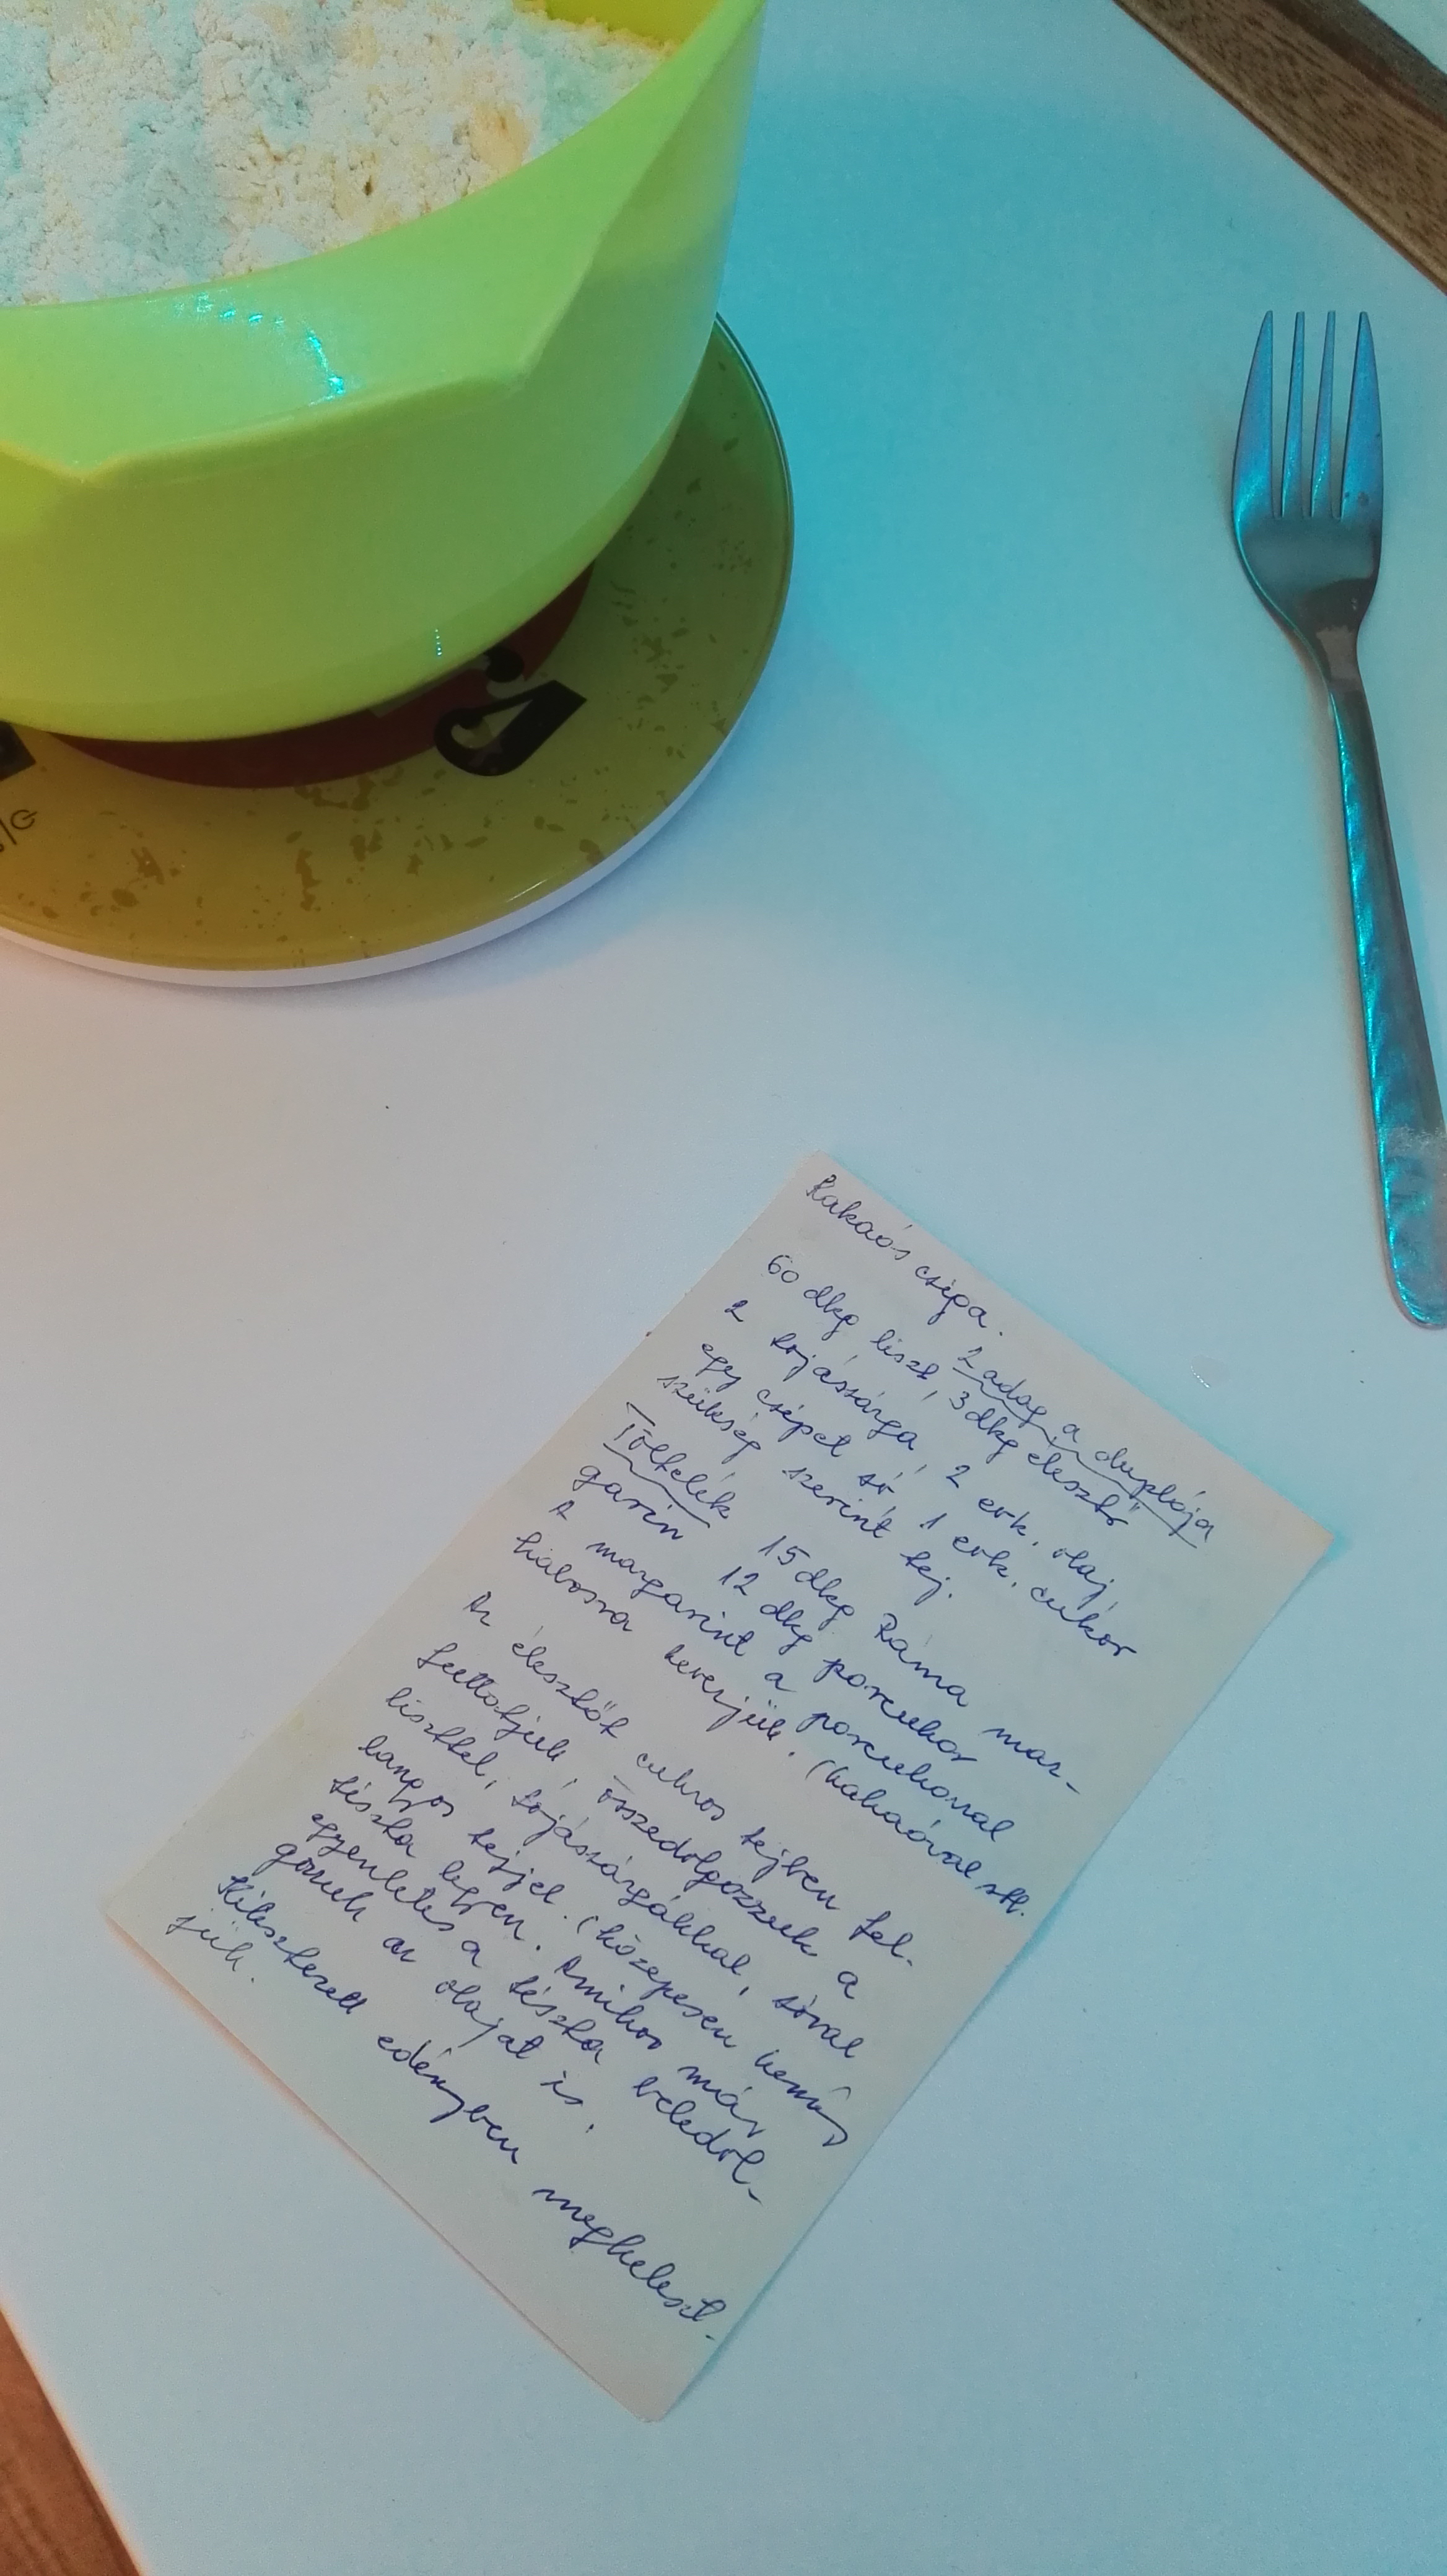 Kakaós csiga.
2 adag a duplája
60 dkg liszt, 3 dkg élesztő
2 tojássárga, 2 evk. olaj,
egy csipet só 1 evk. cukor
szükség szerint tej.
Töltelék 15 dkg Ráma mar-
garin 12 dkg porcukor
A margarint a porcukorral
habosra keverjük. (kakaóval stb.
Az élesztőt cukros tejben fel-
futtatjuk, összedolgozzuk a
liszttel, tojássárgákkal, sóval
langyos tejjel. (közepesen kemény
tészta legyen. Amikor már
egyenletes a tészta beledol-
gozzuk az olajat is.
Kilisztezett edényben megkeleszt-
jük.